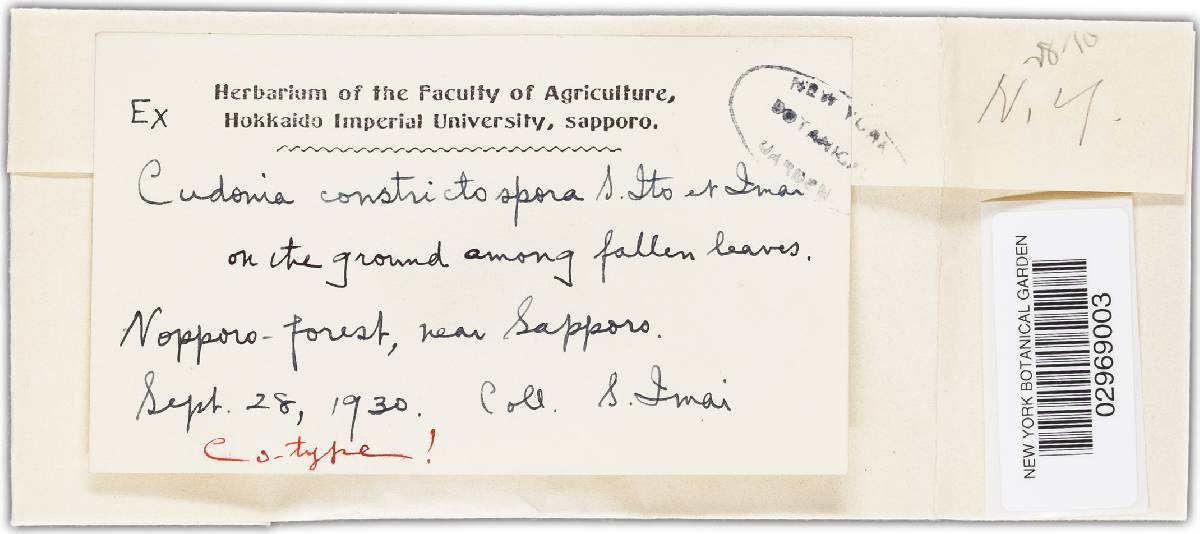 Ex
Herbarium of the Faculty of Agriculture,
Hokkaido Imperial University, sapporo.
NEW YORK
BOTANICAL
GARDEN
Cudonia constrictospora S. Ito et Imai
on the ground among fallen leaves.
Nopporo-forest, near Sapporo.
Sept. 28, 1930. Coll. S. Imai
Co-type!
N.Y.
NEW YORK BOTANICAL GARDEN
02969003